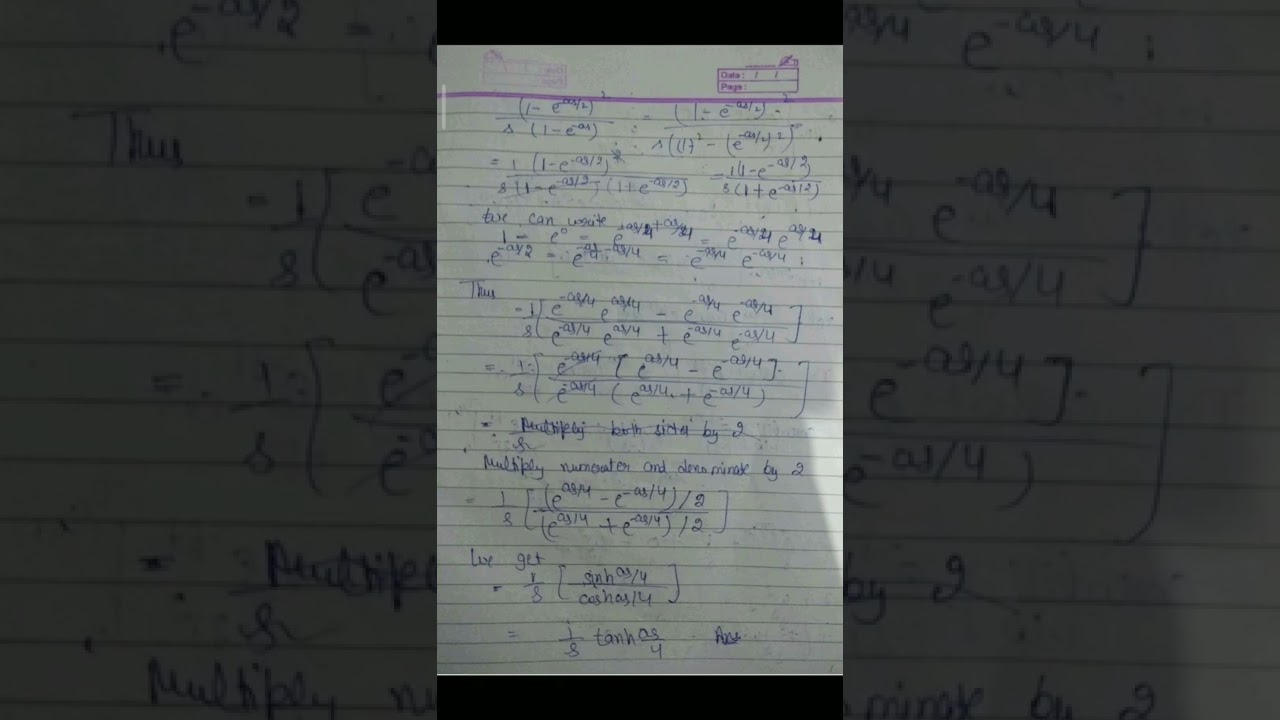 Date: / /
Page:
(1 - e^{-as/2})^2 / s (1 - e^{-as}) = (1 - e^{-as/2})^2 / s ((1)^2 - (e^{-as/2})^2)
= 1 (1 - e^{-as/2})^2 / s (1 - e^{-as/2}) (1 + e^{-as/2}) = 1(1 - e^{-as/2}) / s (1 + e^{-as/2})
we can write
1 = e^0 = = e^{-as/4} e^{as/4}
e^{-as/2} = = e^{-as/4} e^{-as/4} :
Thus
= 1/s [ e^{-as/4} e^{as/4} - e^{-as/4} e^{-as/4} / e^{-as/4} e^{as/4} + e^{-as/4} e^{-as/4} ]
= 1/s [ e^{-as/4} [ e^{as/4} - e^{-as/4} ] / e^{-as/4} ( e^{as/4} + e^{-as/4} ) ]
= Multiply both sides by 2
Multiply numerater and denominate by 2
= 1/s [ (e^{as/4} - e^{-as/4}) / 2 / (e^{as/4} + e^{-as/4}) / 2 ]
we get
= 1/s [ sinh as/4 / cosh as/4 ]
= 1/s tanh as/4 Ans